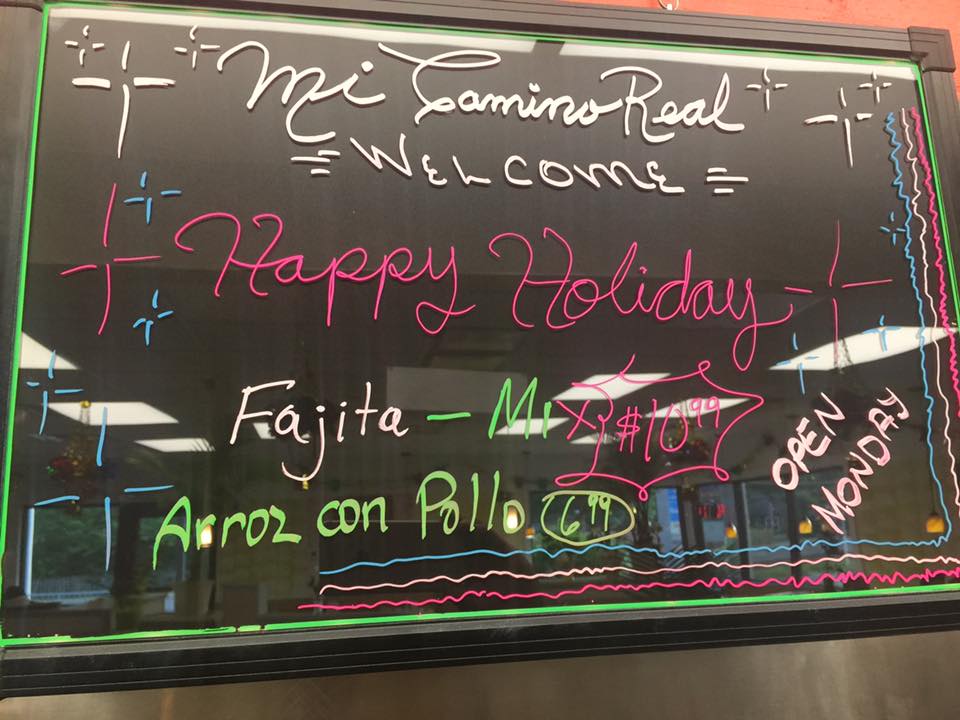 Mi Camino Real
WELCOME
Happy Holiday
Fajita - Mix $10.99
Arroz con Pollo 6.99
OPEN
MONDAY